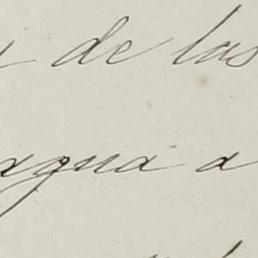 de las
agua a